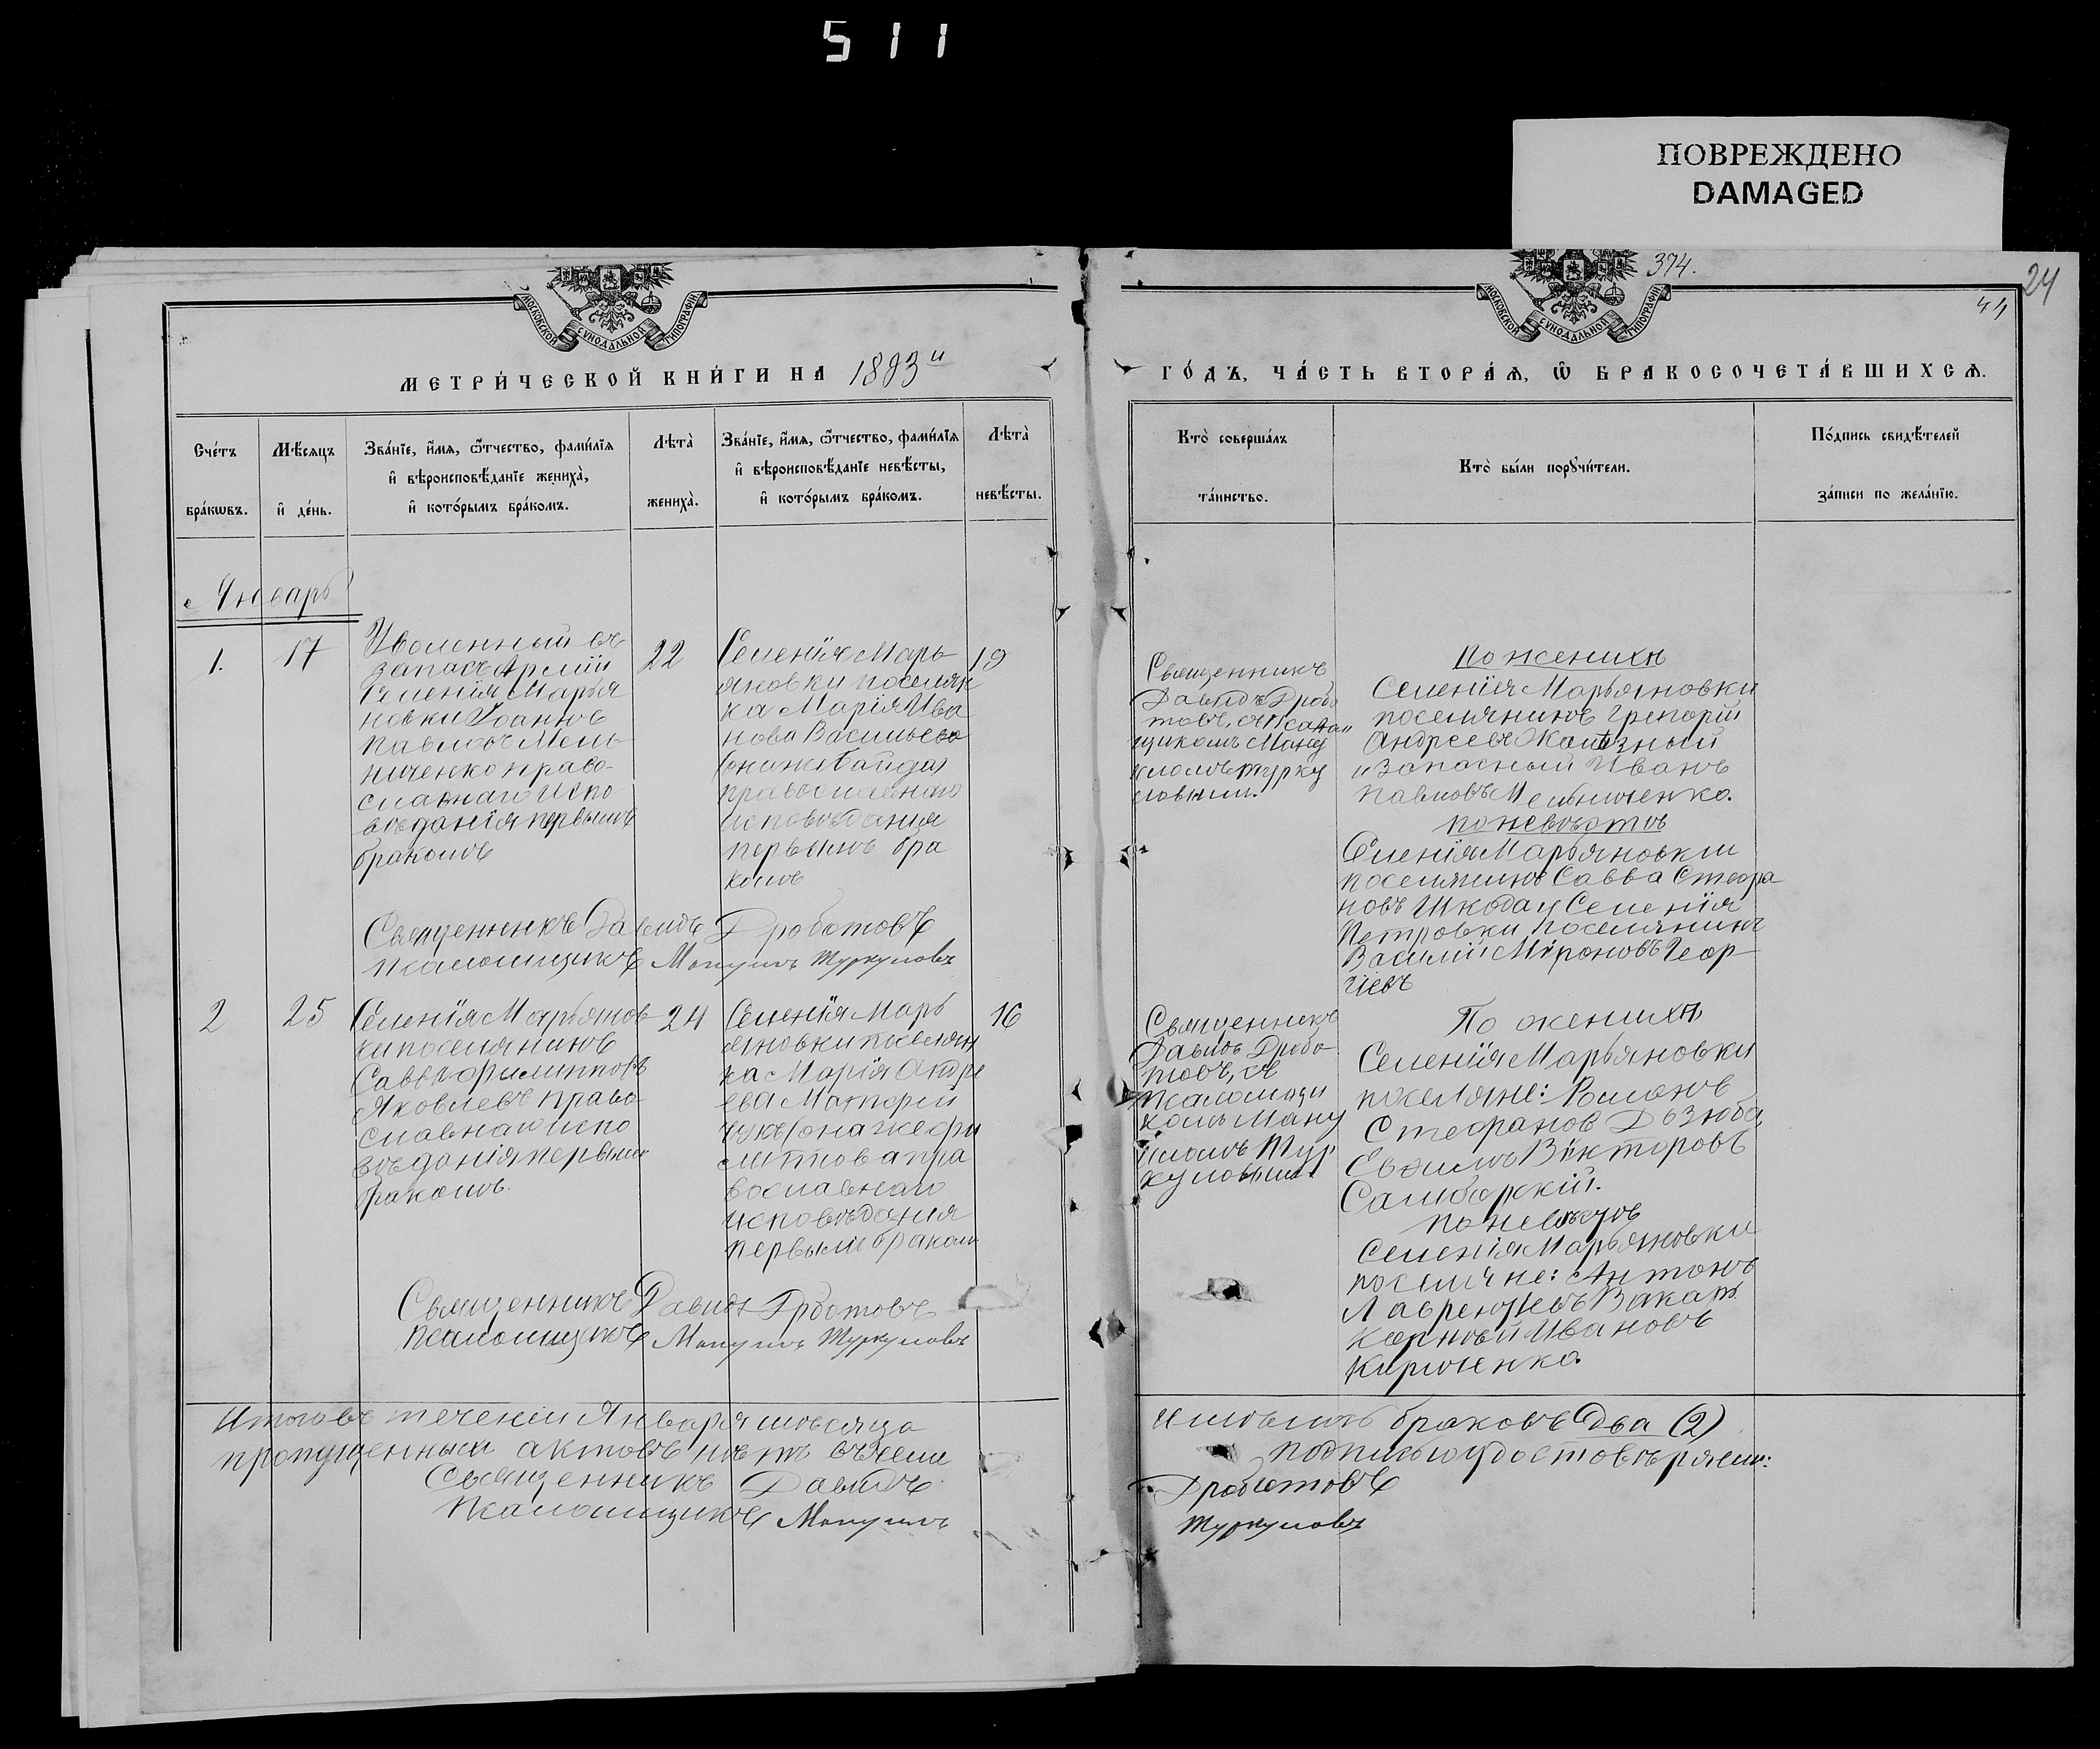 511
ПОВРЕЖДЕНО
DAMAGED
374.
24
МОСКОВСКОЙ СѴНОДАЛЬНОЙ ТИПОГРАФІИ
МОСКОВСКОЙ СѴНОДАЛЬНОЙ ТИПОГРАФІИ
МЕТРИ́ЧЕСКОЙ КНИ́ГИ НА 1893 й
ГО́ДЪ, ЧА́СТЬ ВТОРА́Ѧ, Ѿ БРАКОСОЧЕТА́ВШИХСѦ.
Сче́тъ бра́кѡвъ.
Мѣ́сяцъ и҆ де́нь.
Зва́нїе, и҆́мѧ, ѻ҆́тчество, фами́лїѧ
и҆ вѣроисповѣ́данїе жениха̀,
и҆ кото́рымъ бра́комъ.
Лѣта̀ жениха̀.
Зва́нїе, и҆́мѧ, ѻ҆́тчество, фами́лїѧ
и҆ вѣроисповѣ́данїе невѣ́сты,
и҆ кото́рымъ бра́комъ.
Лѣта̀ невѣ́сты.
Кто̀ соверша́лъ та́инство.
Кто̀ бы́ли порꙋчи́тели.
По́дпись свидѣ́телей
за́писи по жела́нїю.
Январь
1.
17
Уволенный въ
запасъ Арміи
Селенія Марья
новки Іоаннъ
Павловъ Мель
ниченко право-
славнаго испо
вѣданія первымъ
бракомъ
22
Селенія Марь
яновки поселян
ка Марія Ива
нова Васильева
(она же Байда)
православнаго
исповѣданія
первымъ бра
комъ
19
Священникъ
Давидъ Дробо
товъ, съ Псалом
щикомъМану
иломъ Турку
ловымъ.
По женихѣ
Селенія Марьяновки
поселянинъ Григорій
Андреевъ Желѣзный
и Запасный Иванъ
Павловъ Мельниченко.
по невѣстѣ
Селенія Марьяновки
поселянинъ Савва Стефа
новъ Шкода и Селенія
Петровки, поселянинъ
Василій Мѵроновъ Геор-
гіевъ
Священникъ Давидъ Дроботовъ
Псаломщикъ Мануилъ Туркуловъ
2
25
Селенія Марьянов
ки поселянинъ
Савва Филипповъ
Яковлевъ право-
славнаго испо
вѣданія первымъ
бракомъ.
24
Селенія Марь
яновки поселян
ка Марія Андре
ева
чукъ (она же Фи
липпова пра
вославнаго
исповѣданія
первымъ бракомъ
16
Священникъ
Давидъ Дробо-
товъ, съ
Псаломщи
комъ Ману
иломъ Тур
куловымъ.
По женихѣ
Селенія Марьяновки
поселяне:
Стефановъ Дзюба,
Евѳимъ Вікторовъ
Самборскій.
по невѣстѣ
Селенія Марьяновки
поселяне: Антонъ
Лаврентіевъ
Корнѣй Ивановъ
Кириченко.
Священникъ Давидъ Дроботовъ
Псаломщикъ Мануилъ Туркуловъ
Итого въ теченіи Января мѣсяца
пропущенныхъ актовъ нѣтъ въ чемъ
Священникъ Давидъ
Псаломщикъ Мануилъ
браковъ Два (2)
подписью удостовѣряемъ:
Дроботовъ
Туркуловъ